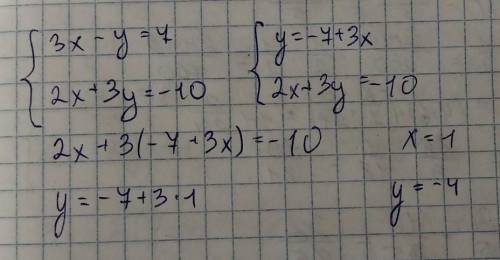 3x - y = 7
2x + 3y = -10
y = -7 + 3x
2x + 3y = -10
2x + 3(-7 + 3x) = -10
x = 1
y = -7 + 3 · 1
y = -4